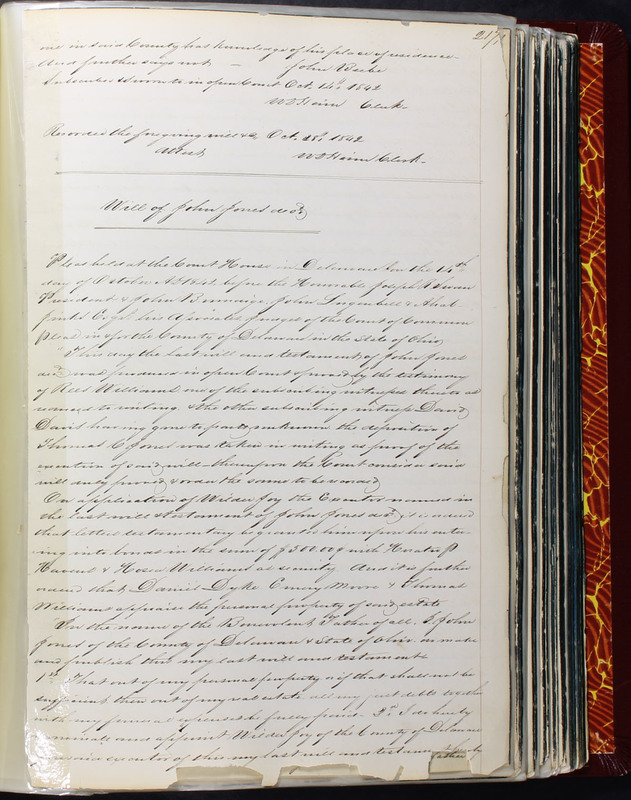 217
one in said County has knowledge of his place of residence.
And further says not — John Beebe
Subscribed & sworn to in open Court Oct. 14th 1842
Clerk.
Recorded the foregoing will &c Oct. 28th 1842
Attest, Clerk.
Will of John Jones decd.
Pleas held at the Court House in Delaware on the 14th
day of October AD 1842 before the Honorable Joseph
President & John John & Ahab
his Associate Judges of the Court of Common
Pleas in & for the County of Delaware in the State of Ohio
This day the last will and testament of John Jones
decd. was produced in open Court & proved by the testimony
of Rees Williams one of the subscribing witnesses thereto as
reduced to writing & the other subscribing witness David
Davis having gone to parts unknown the deposition of
Thomas C Jones was taken in writing as proof of the
execution of said will — thereupon the Court consider said
will duly proved & order the same to be recorded
On application of Wilder Joy the Executor named in
the last will & testament of John Jones decd. it is ordered
that letters testamentary be granted him upon his enter-
ing into bonds in the sum of $500.00 with
& Hosea Williams as security And it is further
ordered that Daniel Dyke Emery Moore & Thomas
Williams appraise the personal property of said estate
In the name of the Benevolent Father of all. I John
Jones of the County of Delaware & State of Ohio do make
and publish this my last will and testament
1st That out of my personal property & if that shall not be
sufficient then out of my real estate all my just debts together
with my funeral expenses be fully paid. 2nd I do hereby
and appoint Wilder Joy of the County of Delaware
executor of this my last will and testament hereby